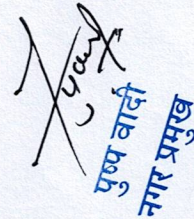 पुष्प वादी
नगर प्रमुख